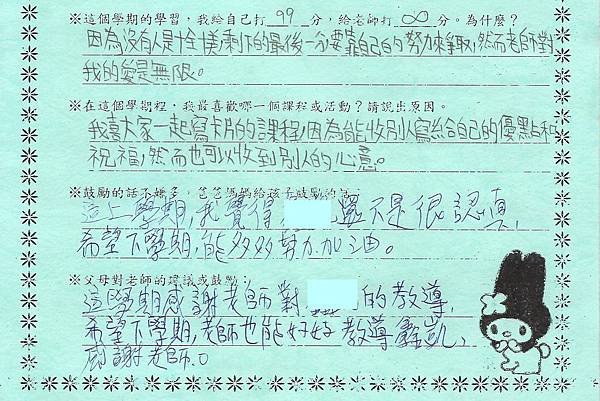 ※這個學期的學習,我給自己打 99 分,給老師打 ∞ 分。為什麼?
因為沒有人是十全十美,剩下的最後一分要靠自己的努力來爭取,然而老師對
我的愛是無限。
※在這個學期裡,我最喜歡哪一個課程或活動?請說出原因。
我喜大家一起寫卡片的課程,因為能收別人寫給自己的優點和
祝福,然而也可以收到別人的心意。
※鼓勵的話不嫌多,爸爸媽媽給孩子鼓勵的話:
這上學期,我覺得 還不是很認真,
希望下學期,能多多努力加油。
※父母對老師的建議或鼓勵:
這學期感謝老師對 的教導,
希望下學期,老師也能好好教導 凱、
感謝老師。